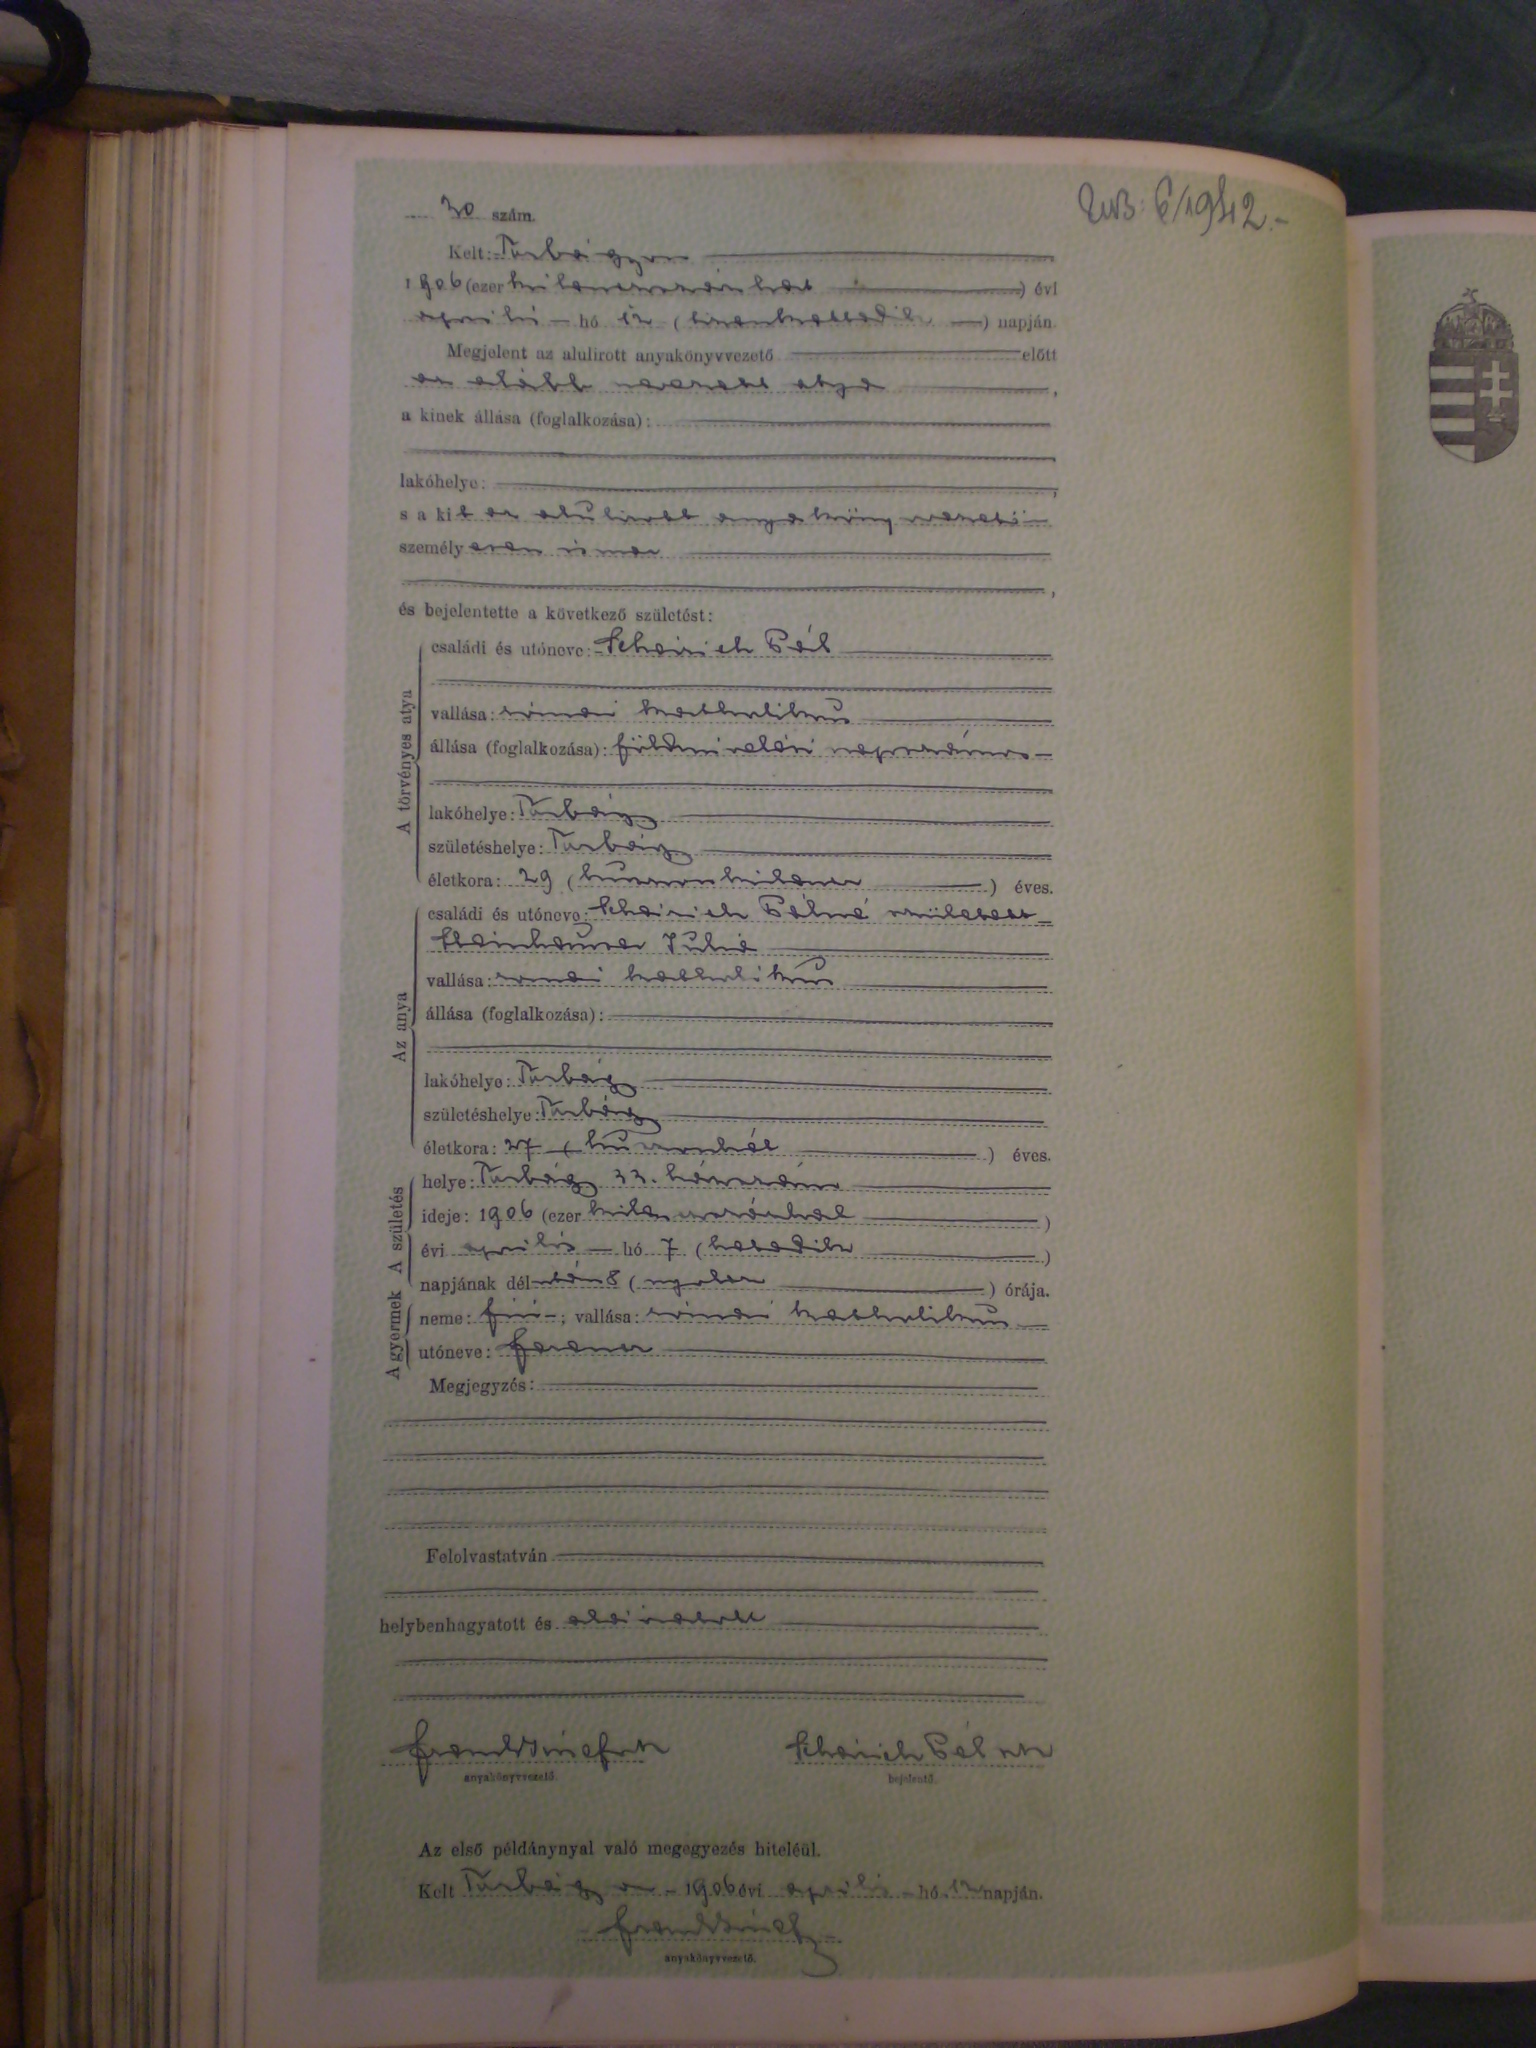 30 szám.
Kelt: Turbágyon
1906 (ezer kilencszázhat) évi
április hó 12 (tizenkettedik) napján
Megjelent az alulirott anyakönyvvezető előtt
az alább nevezett atya,
a kinek állása (foglalkozása):
lakóhelye:
s a kit az alulirott anyakönyvvezető
személyesen ismer
és bejelentette a következő születést:
A törvényes atya
családi és utóneve: Pál
vallása: római katholikus
állása (foglalkozása): földmivelési napszámos
lakóhelye:
születéshelye:
életkora: 29 (huszonkilenc) éves.
Az anya
családi és utóneve: Pálné született
Julia
vallása: római katholikus
állása (foglalkozása):
lakóhelye:
születéshelye:
életkora: 27 (huszonhét) éves.
A születés
helye: 33. házszám
ideje: 1906 (ezer kilencszázhat)
évi április hó 7 (hetedik)
napjának délután 8 (nyolcz) órája.
A gyermek
neme: fiú; vallása: római katholikus
utóneve: Ferencz
Megjegyzés:
Felolvastatván
helybenhagyatott és aláiratott
anyakönyvvezető.
Pál
bejelentő.
Az első példánynyal való megegyezés hiteléül.
Kelt 1906 évi április hó 12 napján.
anyakönyvvezető.
6/1942.-